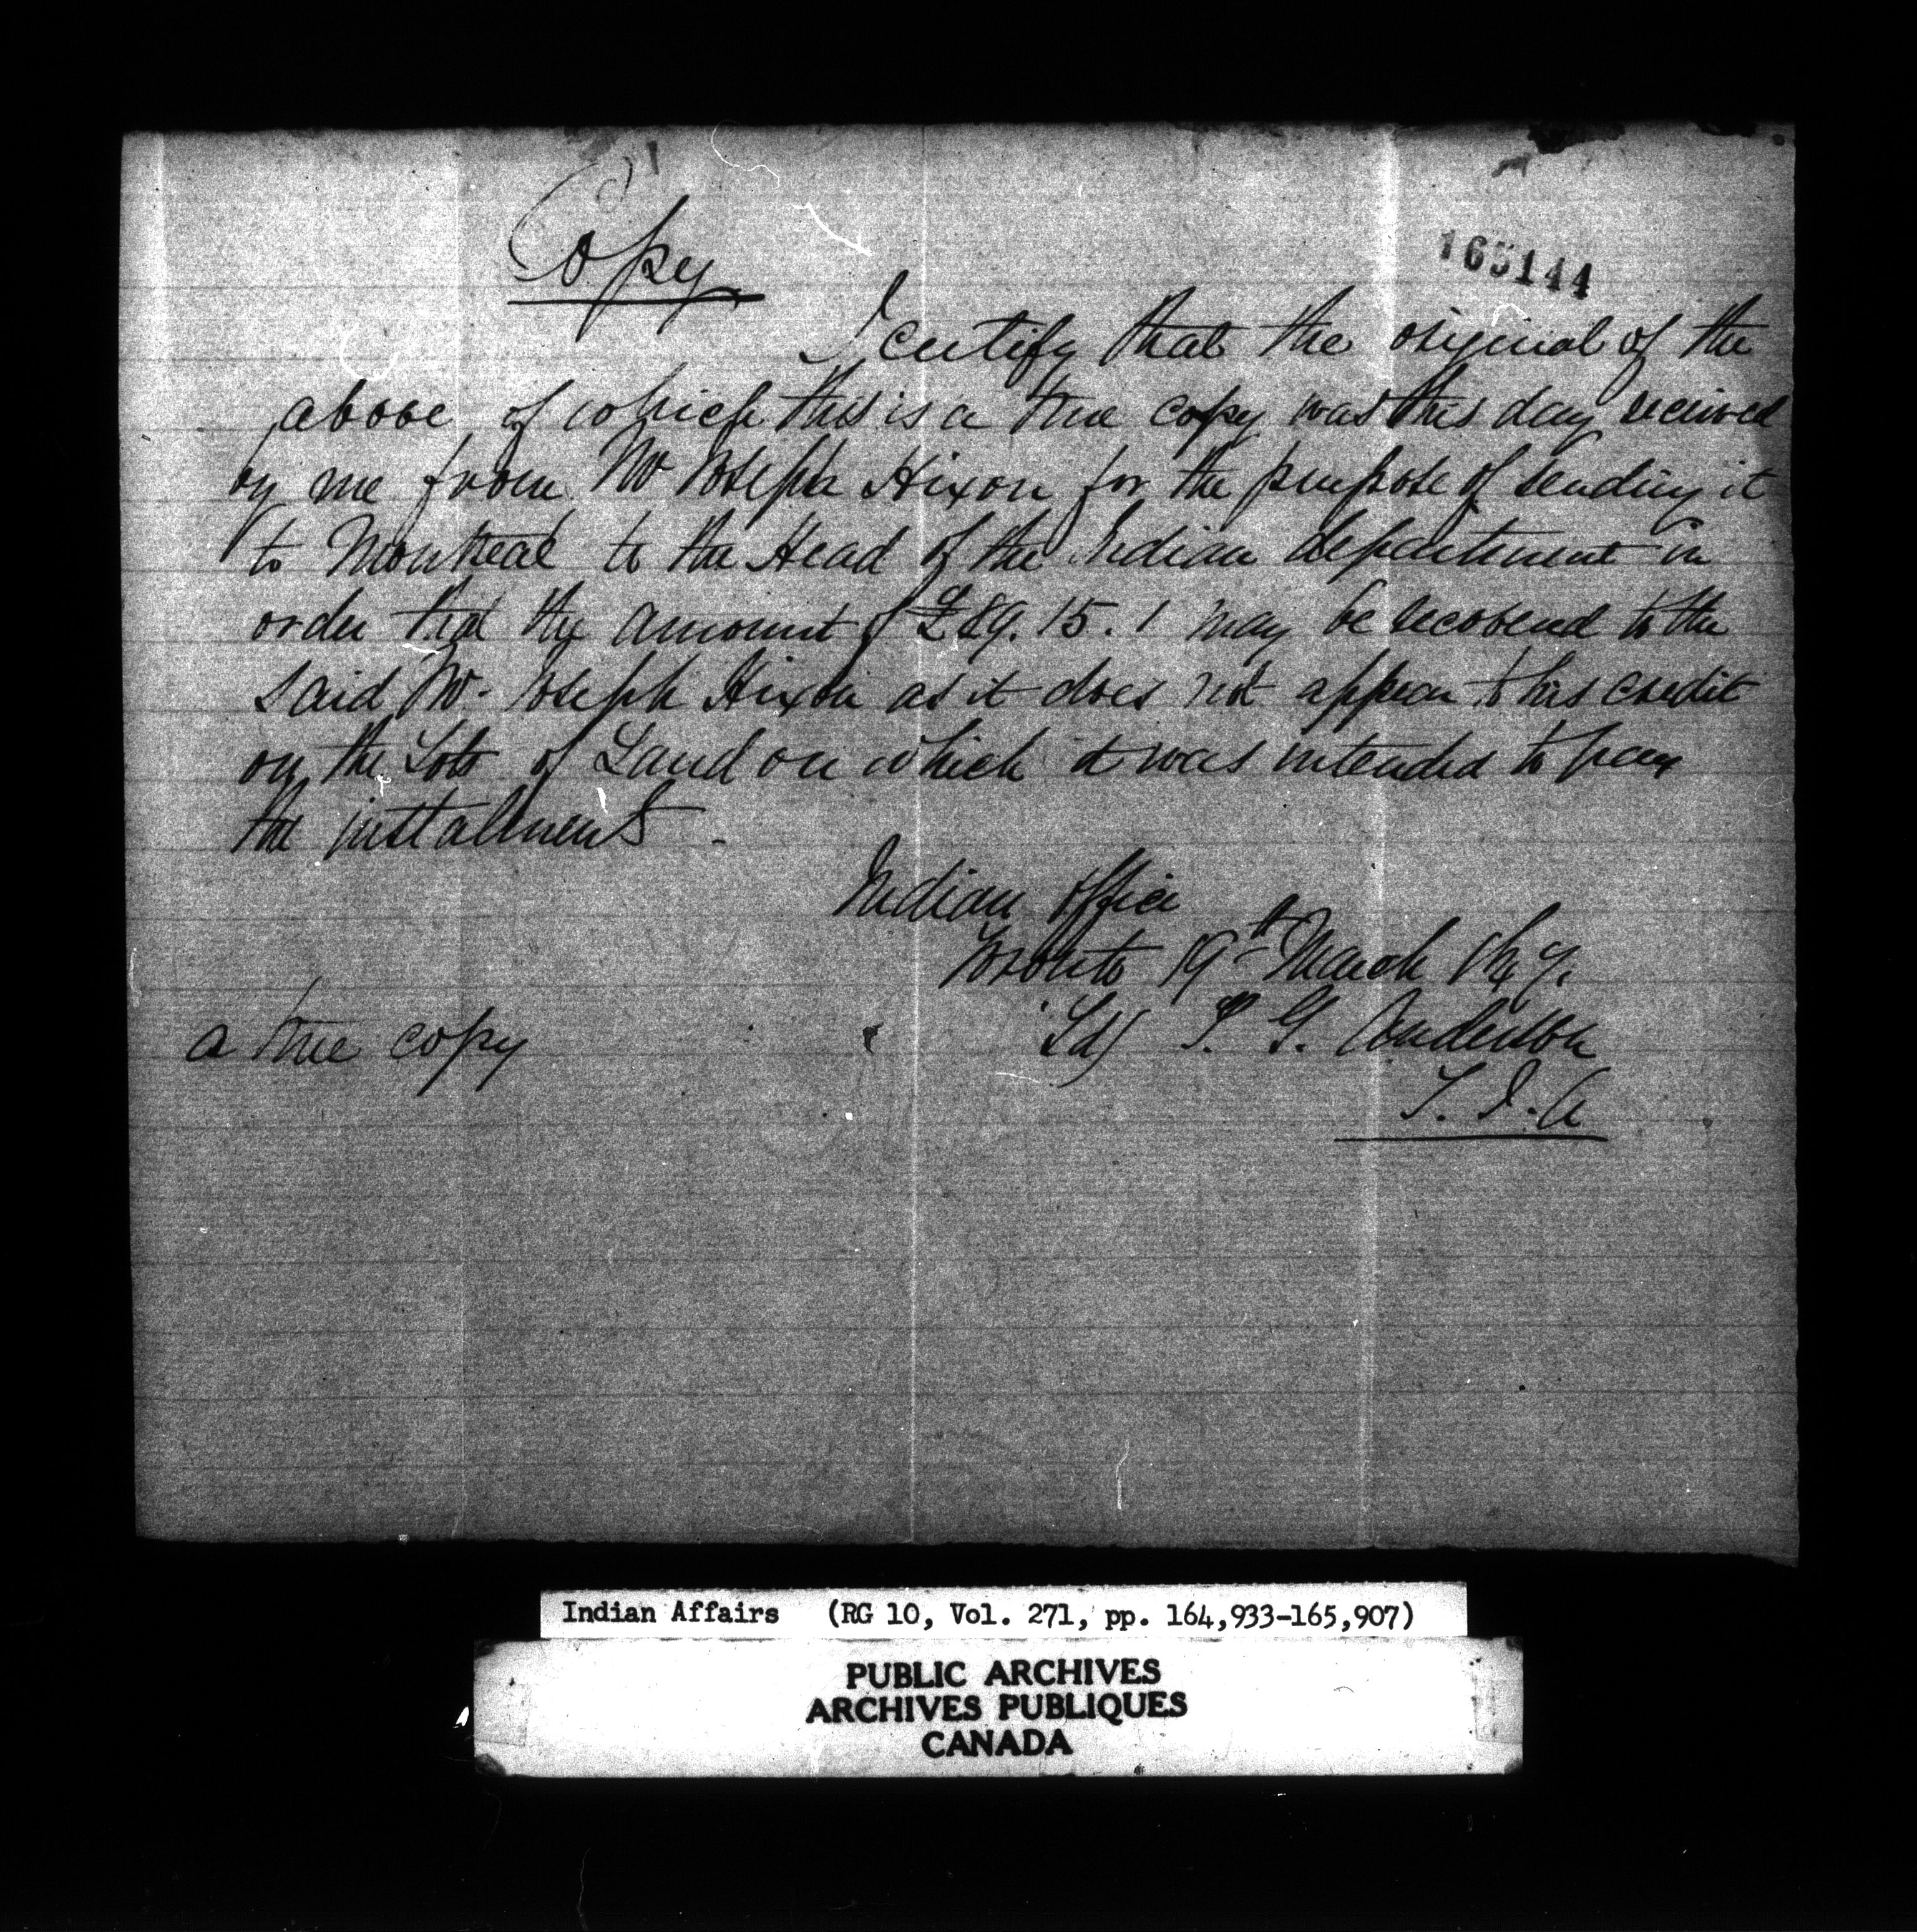 Copy
165144
I certify that the original of the
above of which this is a true copy was this day received
by me from Mr Joseph Hixon for the purpose of sending it
to Montreal to the Head of the Indian department in
order that the amount of £89.15.1 may be
to the
said Mr. Joseph Hixon as it does not appear to his credit
on the Lots of Land on which it was intended to pay
the installments -
Indian Office
Toronto 19th March 1847.
a true copy
Sd/ T. G. Anderson
S. I. A
Indian Affairs (RG 10, Vol. 271, pp. 164,933-165,907)
PUBLIC ARCHIVES
ARCHIVES PUBLIQUES
CANADA